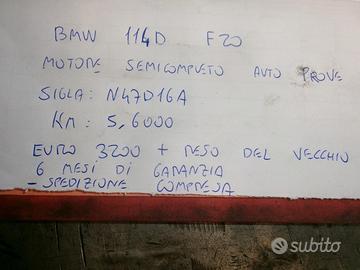 BMW 114D F20
MOTORE SEMICOMPLETO AUTO PROVE
SIGLA: N47D16A
KM: 5,6000
EURO 3200 + RESO DEL VECCHIO
6 MESI DI GARANZIA
- SPEDIZIONE COMPRESA
subito